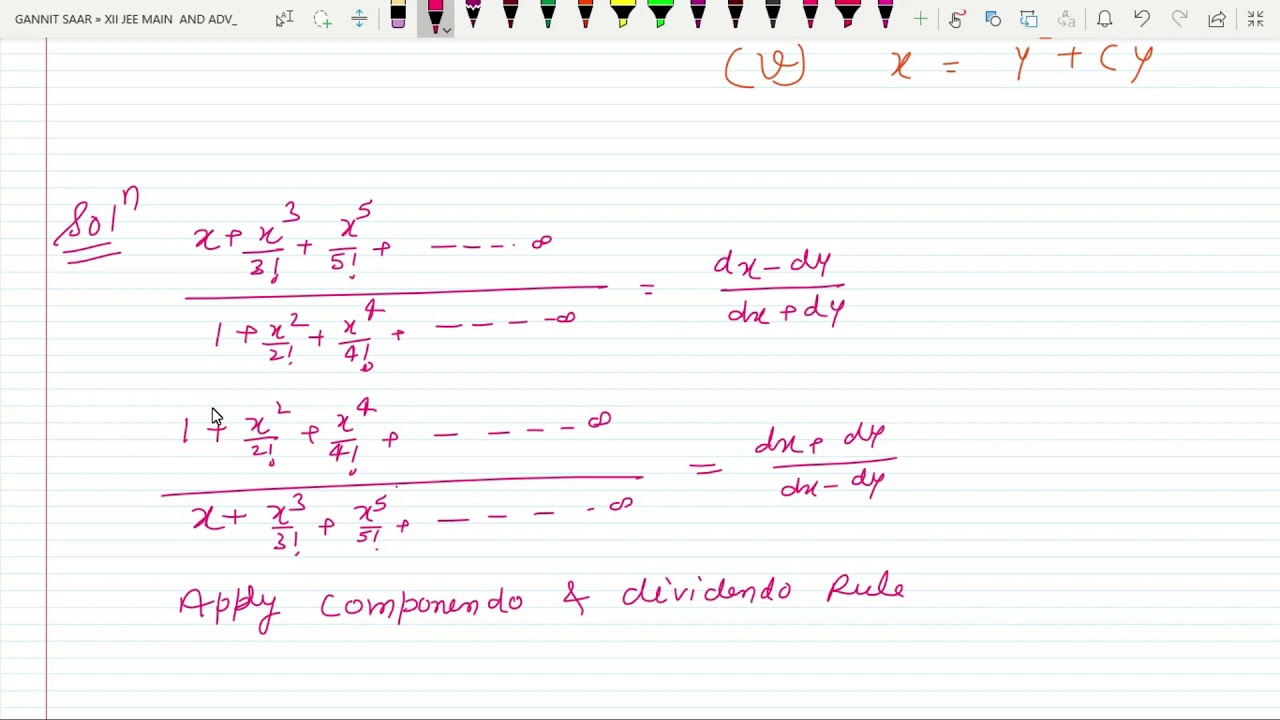 GANNIT SAAR » XII JEE MAIN AND ADV_
(v) x = y² + cy
Solⁿ
(x + x³/3! + x⁵/5! + ---- ∞) / (1 + x²/2! + x⁴/4! + ---- ∞) = (dx - dy) / (dx + dy)
(1 + x²/2! + x⁴/4! + ---- ∞) / (x + x³/3! + x⁵/5! + ---- ∞) = (dx + dy) / (dx - dy)
Apply Componendo & dividendo Rule